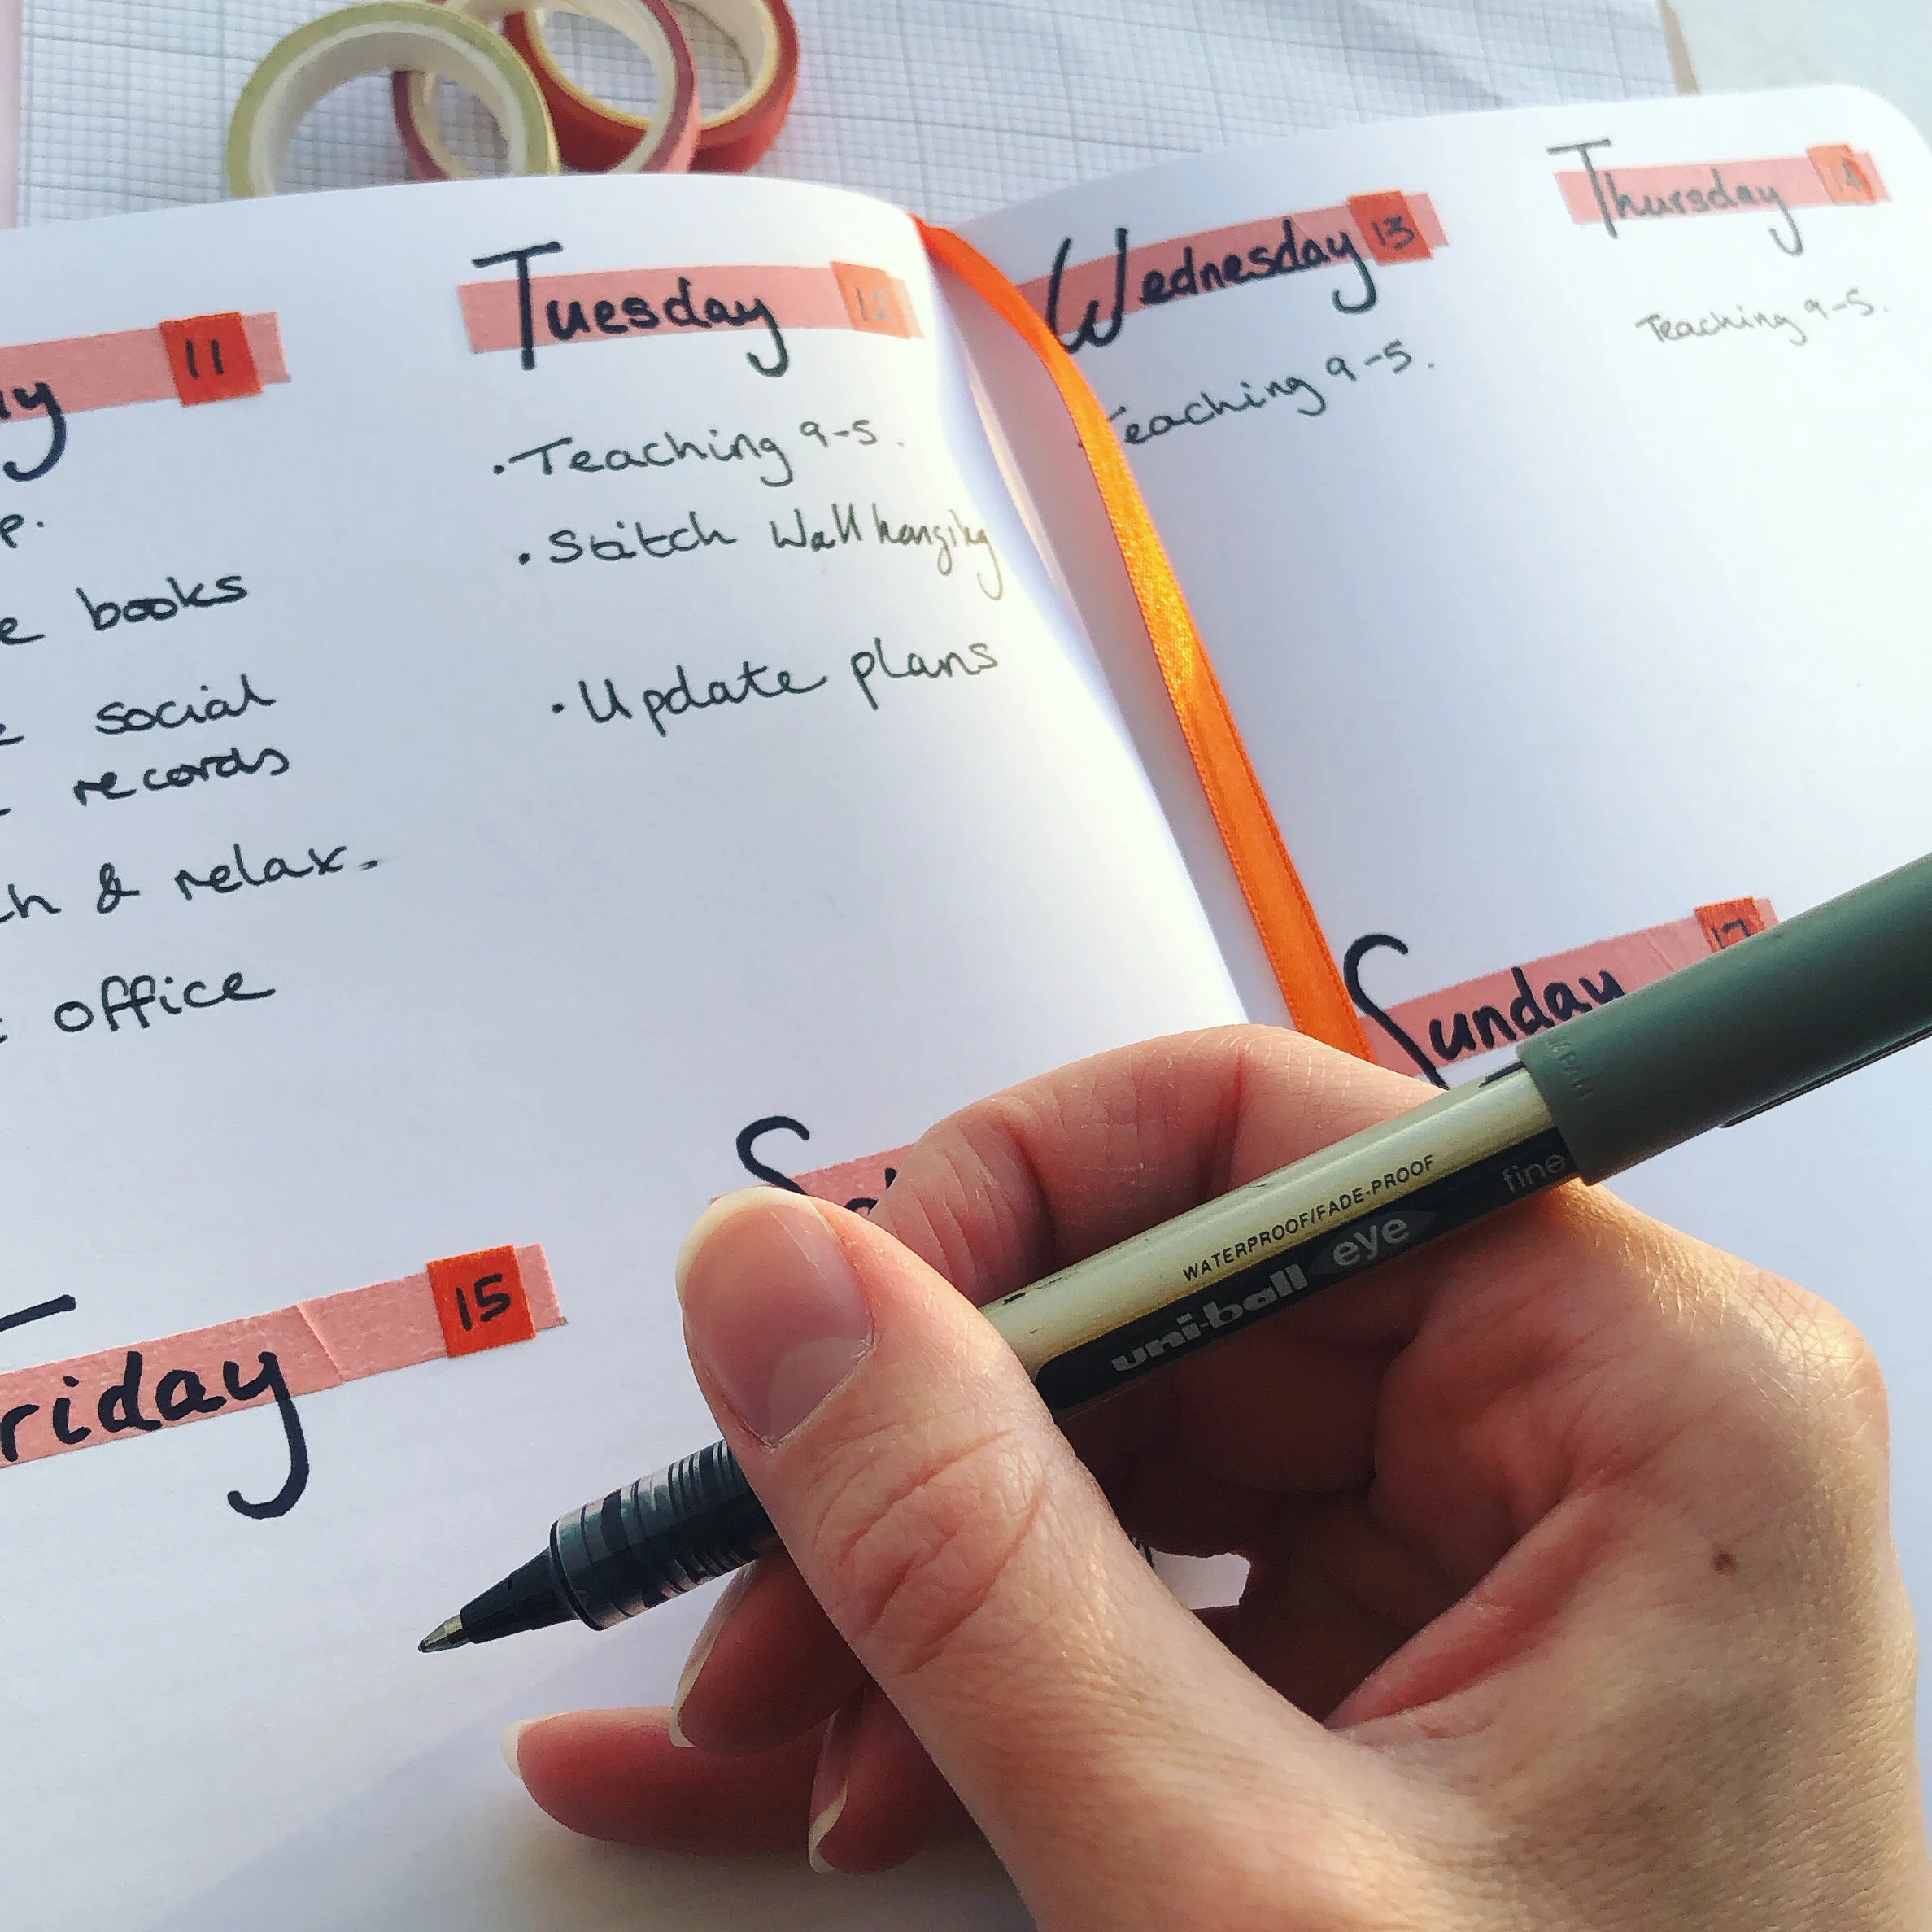 11
p.
e books
social
records
h & relax.
office
Tuesday 12
• Teaching 9-5.
• Stitch Wall hanging
• Update plans
Wednesday 13
Teaching 9-5.
Thursday 14
Teaching 9-5.
riday 15
Sunday 17
WATERPROOF/FADE-PROOF
uni-ball eye fine